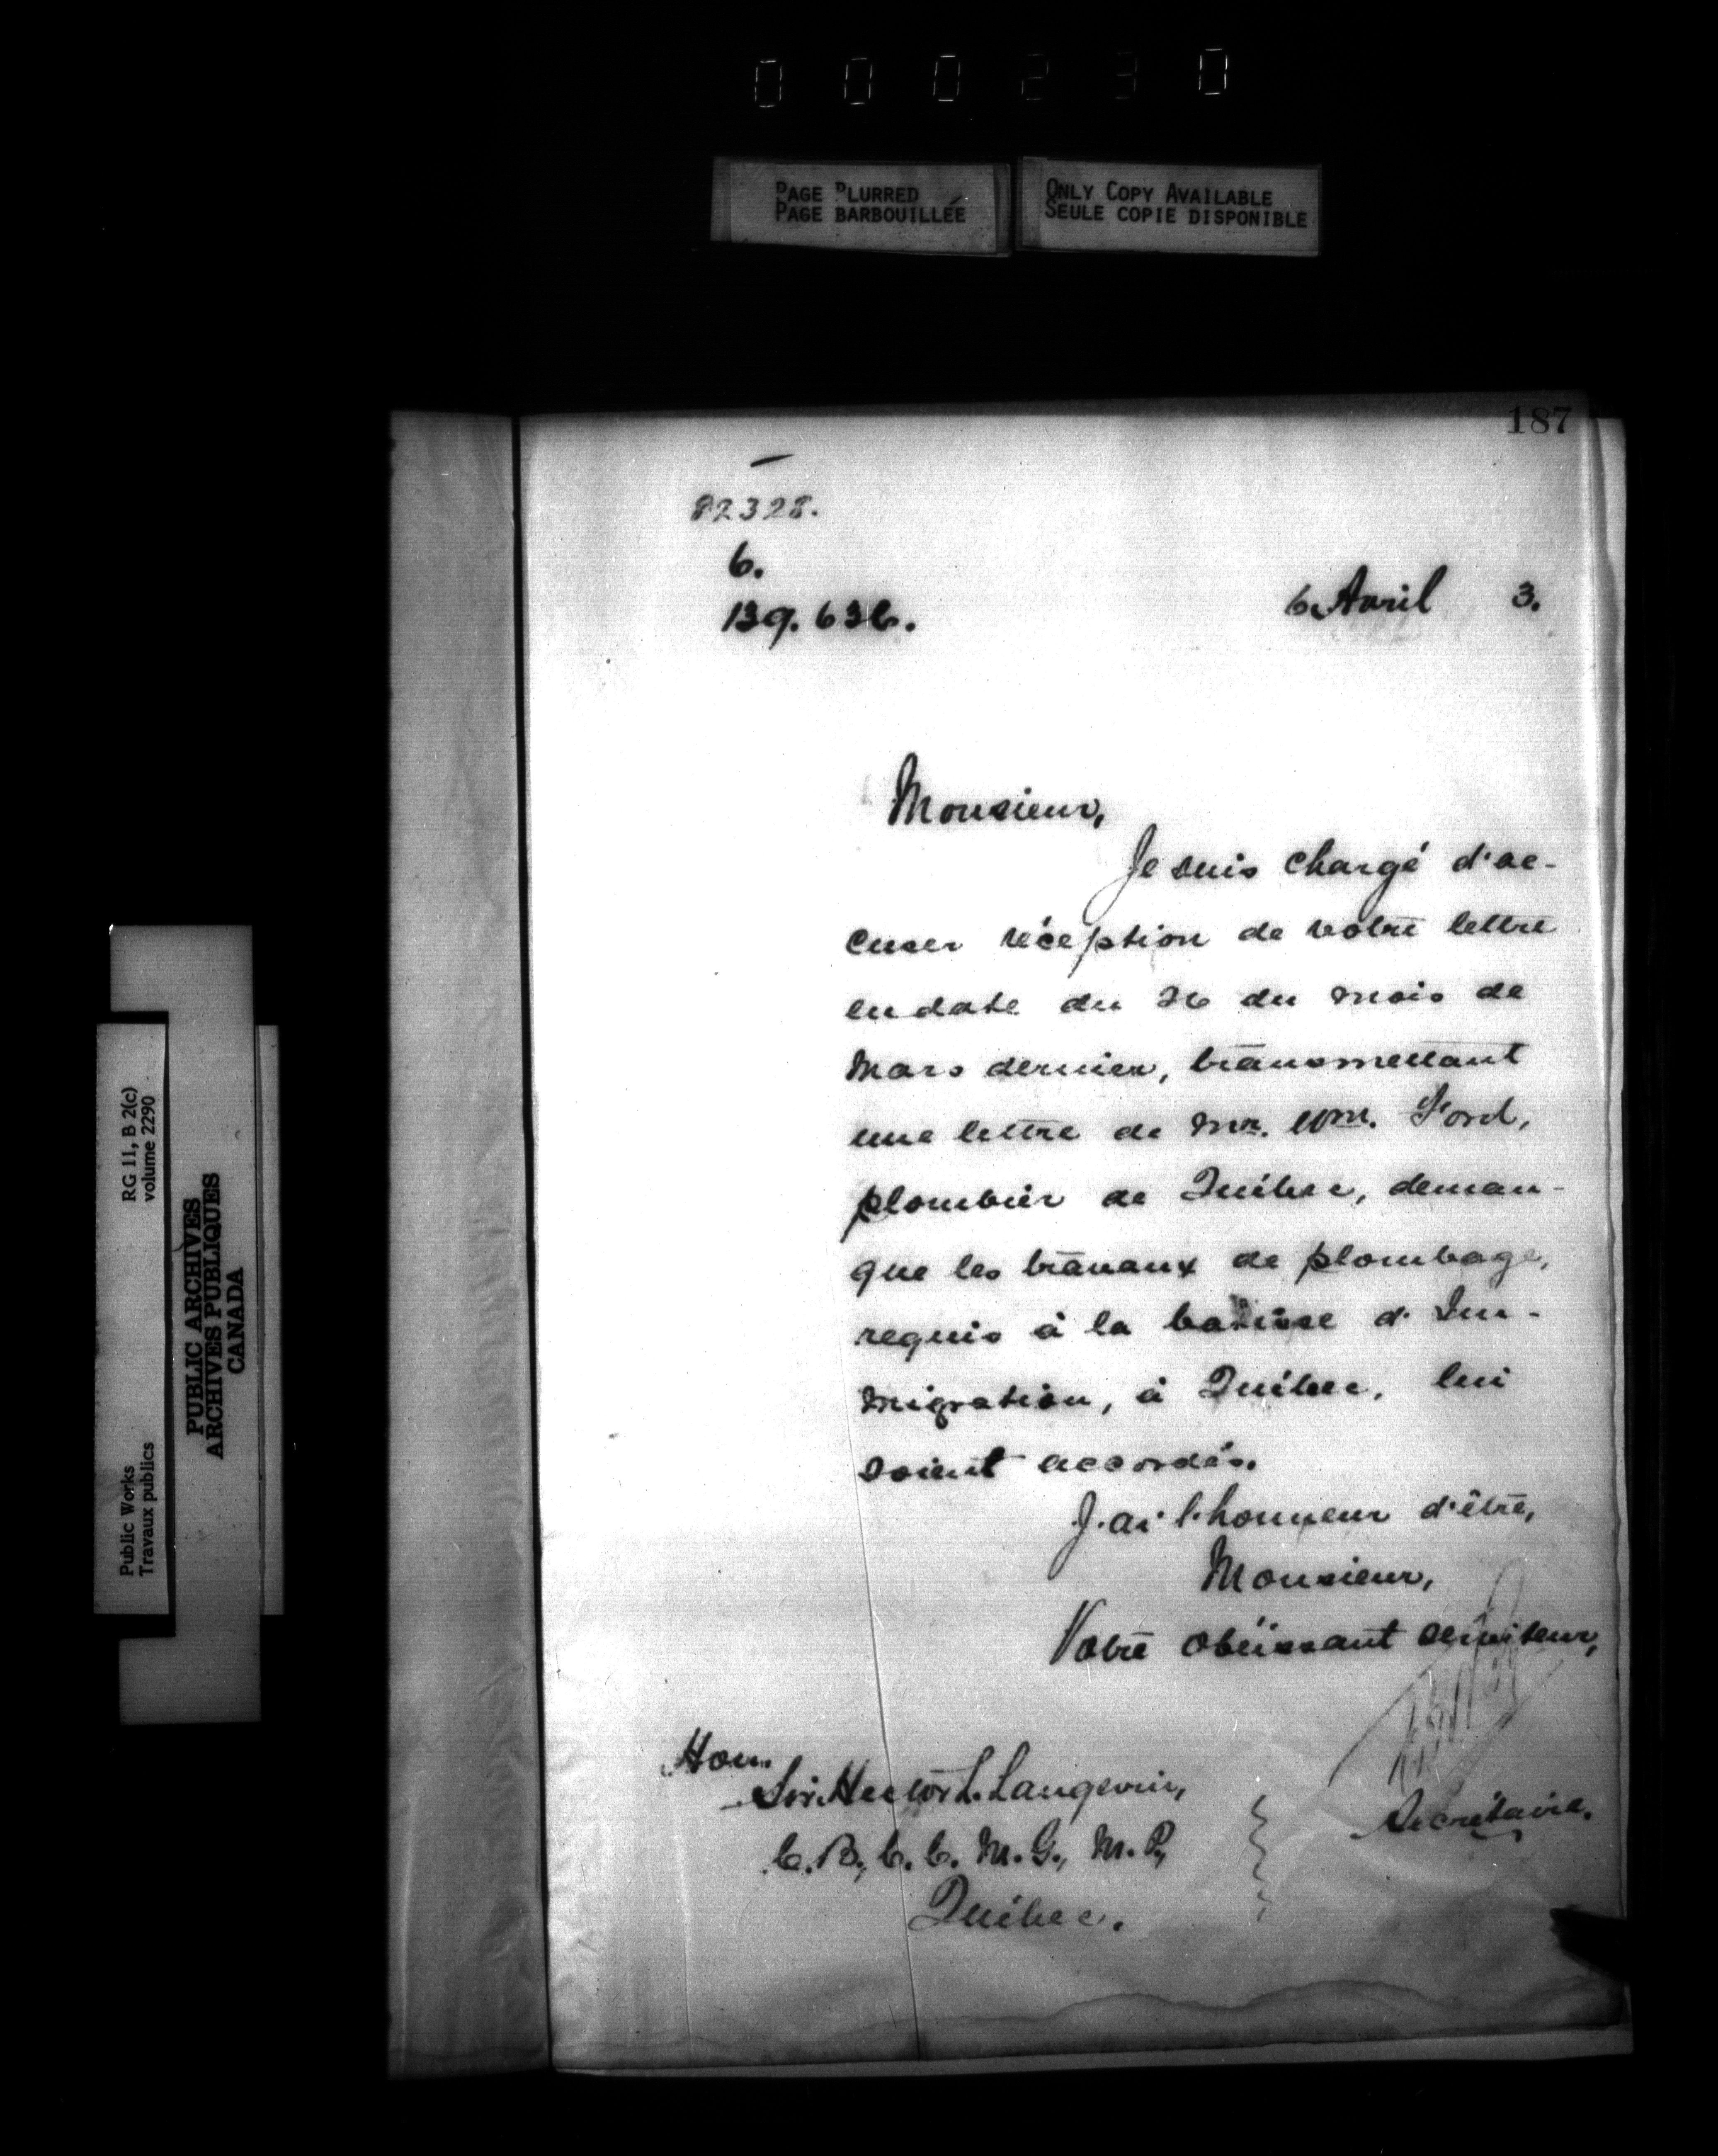 000230
PAGE BLURRED
PAGE BARBOUILLÉE
ONLY COPY AVAILABLE
SEULE COPIE DISPONIBLE
187
82328.
6.
139.636.
6 Avril 3.
Monsieur,
Je suis chargé d'ac-
cuser réception de votre lettre
en date du 26 du mois de
Mars dernier, transmettant
une lettre de Mr. Wm. Ford,
plombier de Québec, deman-
que les travaux de plombage,
requis à la batisse d'Im-
migration, à Québec, lui
soient accordés.
J'ai l'honneur d'être,
Monsieur,
Votre obéissant serviteur,
Secrétaire.
Hon.
Sir Hector L. Langevin,
C.B., C.C.M.G., M.P.,
Québec.
Public Works
Travaux publics
RG 11, B 2(c)
volume 2290
PUBLIC ARCHIVES
ARCHIVES PUBLIQUES
CANADA